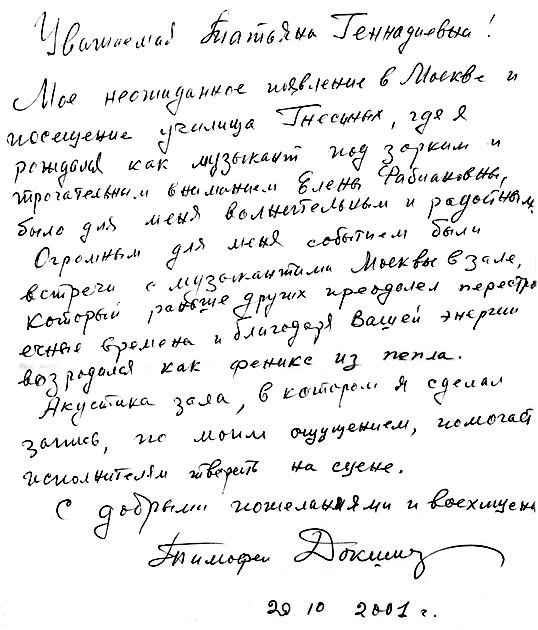 Уважаемая Татьяна Геннадиевна!
Мое неожиданное появление в Москве и
посещение училища Гнесиных, где я
рождался как музыкант под зорким и
трогательным вниманием Елены Фабиановны,
было для меня волнительным и радостным.
Огромным для меня событием были
встречи с музыкантами Москвы в зале,
который раньше других преодолел перестро
ечные времена и благодаря Вашей энергии
возродался как феникс из пепла.
Акустика зала, в котором я сделал
запись, по моим ощущением, помогает
исполнителям творить на сцене.
С добрыми пожеланиями и восхищен
Тимофей Докшиц
20 10 2001 г.